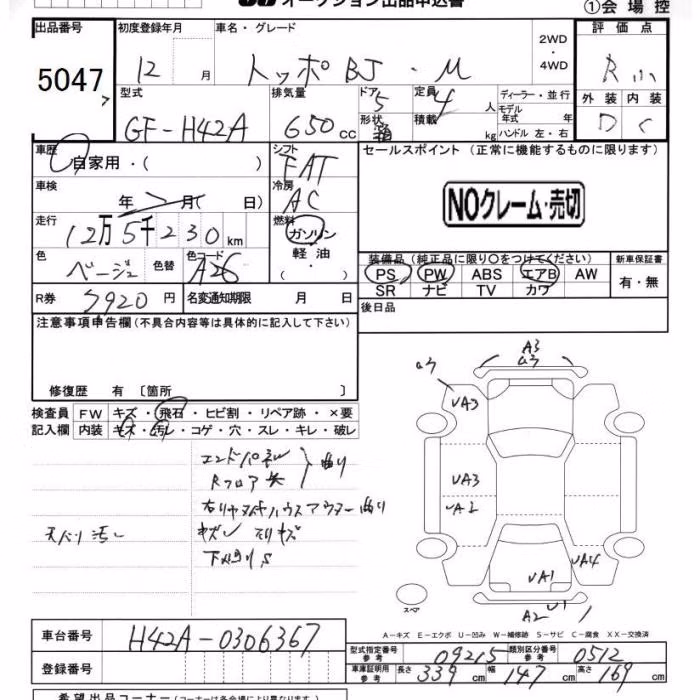 オークション出品申込書
①会場控
出品番号 初度登録年月 車名・グレード 評価点
5047 12月 トッポBJ・M 2WD・4WD R
型式 排気量 ドア 定員 ディーラー・並行 外装 内装
GF-H42A 650cc 5 4人 モデル年式 年 D C
形状 箱 積載 kg ハンドル 左・右
車歴 シフト セールスポイント (正常に機能するものに限ります)
自家用・( ) FAT
車検 冷房 NOクレーム・売切
年 月( 日) AC
走行 燃料
12万5千230km ガソリン
色 色替 色コード 軽油 装備品(純正品に限り○をつけてください) 新車保証書
ベージュ A26 ・ PS PW ABS エアB AW 有・無
SR ナビ TV カワ
R券 5920円 名変通知期限 月 日 後日品
注意事項申告欄(不具合内容等は具体的に記入して下さい)
修復歴 有 〔箇所 〕
検査員 FW キズ・飛石・ヒビ割・リペア跡・×要
記入欄 内装 キズ・汚レ・コゲ・穴・スレ・キレ・破レ
エンドパネル
Rフロア 曲り
右リヤ アウター曲り
天バリ汚レ キズ
A3
U3
UA3
UA3
UA2
UA4
UA1
U1
A2
スペア
A-キズ E-エクボ U-凹み W-補修跡 S-サビ C-腐食 XX-交換済
車台番号 H42A-0306367
型式指定番号 参考 09215 類別区分番号 参考 0512
登録番号 車庫証明用 参考 長さ 339cm 幅 147cm 高さ 169cm
希望出品コーナー(コーナーは各会場により異なります)